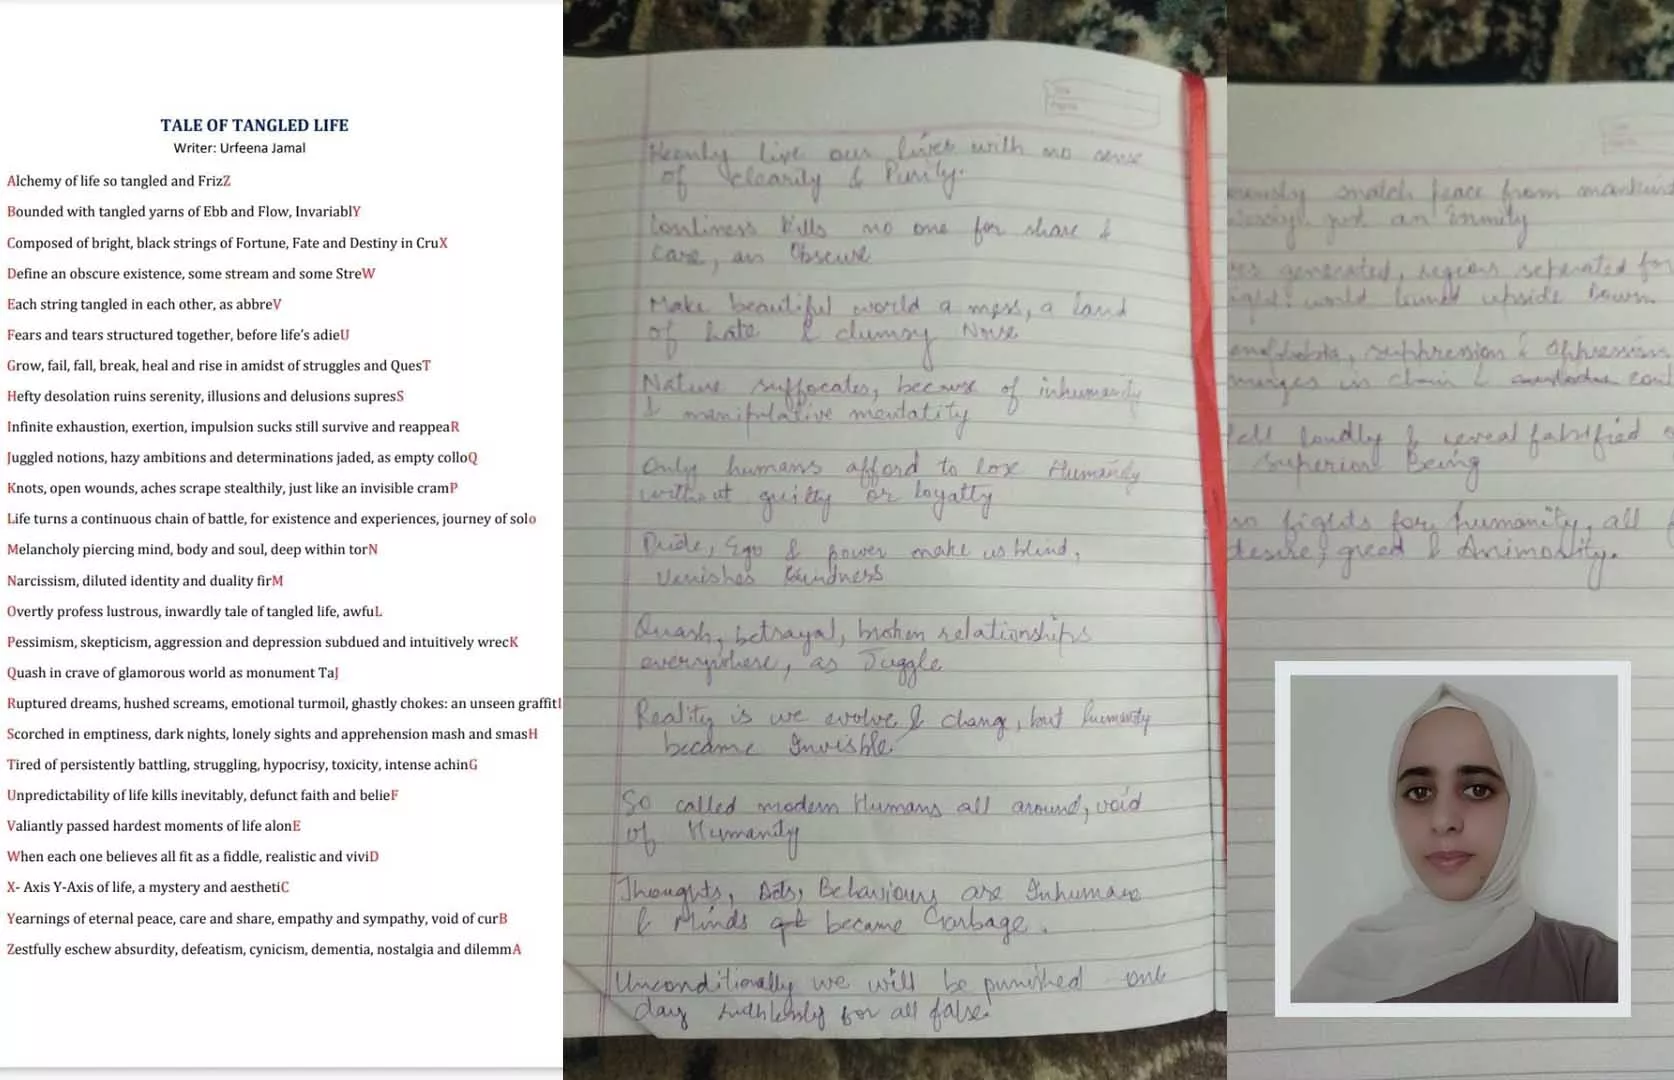 TALE OF TANGLED LIFE
Writer: Urfeena Jamal
Alchemy of life so tangled and FrizZ
Bounded with tangled yarns of Ebb and Flow, InvariablY
Composed of bright, black strings of Fortune, Fate and Destiny in CruX
Define an obscure existence, some stream and some StreW
Each string tangled in each other, as abbreV
Fears and tears structured together, before life's adieU
Grow, fail, fall, break, heal and rise in amidst of struggles and QuesT
Hefty desolation ruins serenity, illusions and delusions supresS
Infinite exhaustion, exertion, impulsion sucks still survive and reappeaR
Juggled notions, hazy ambitions and determinations jaded, as empty colloQ
Knots, open wounds, aches scrape stealthily, just like an invisible cramP
Life turns a continuous chain of battle, for existence and experiences, journey of solo
Melancholy piercing mind, body and soul, deep within torN
Narcissism, diluted identity and duality firM
Overtly profess lustrous, inwardly tale of tangled life, awfuL
Pessimism, skepticism, aggression and depression subdued and intuitively wrecK
Quash in crave of glamorous world as monument TaJ
Ruptured dreams, hushed screams, emotional turmoil, ghastly chokes: an unseen graffitI
Scorched in emptiness, dark nights, lonely sights and apprehension mash and smasH
Tired of persistently battling, struggling, hypocrisy, toxicity, intense achinG
Unpredictability of life kills inevitably, defunct faith and belieF
Valiantly passed hardest moments of life alonE
When each one believes all fit as a fiddle, realistic and viviD
X- Axis Y-Axis of life, a mystery and aesthetiC
Yearnings of eternal peace, care and share, empathy and sympathy, void of curB
Zestfully eschew absurdity, defeatism, cynicism, dementia, nostalgia and dilemmA
Keenly live our lives with no sense
of clearity & Purity.
Lonliness kills no one for share &
care, an Obscure
Make beautiful world a mess, a land
of hate & clumsy Noise
Nature suffocates, because of inhumanity
& manipulative mentatity
Only humans afford to lose Humanity
without guilty or loyatty
Pride, Ego & power make us blind,
vanishes kindness
Quash, betrayal, broken relationships
everywhere, as Juggle
Reality is we evolve & change, but humanity
became Invisble
So called modern Humans all around, void
of Humanity
Thoughts, Behaviours are Inhumane
& Minds became Garbage.
Unconditionally we will be punished one
day ruthlessly for all false.
snatch peace from
just an Enmity
generated, regions separated for
world turned upside Down.
suppression & Oppression
in chain &
loudly & reveal falsified
Superior Being
fights for humanity, all
desire, greed & Animosity.